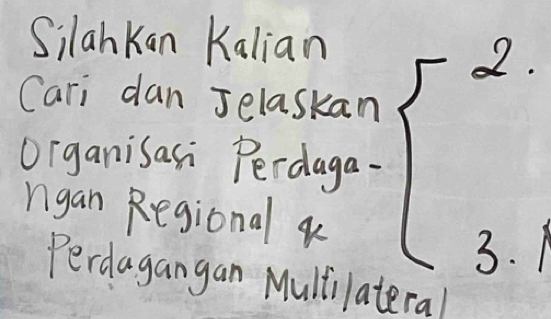 Silahkan Kalian
Cari dan Jelaskan
Organisasi Perdaga-
ngan Regional &
Perdagangan Multilateral
2.
3.